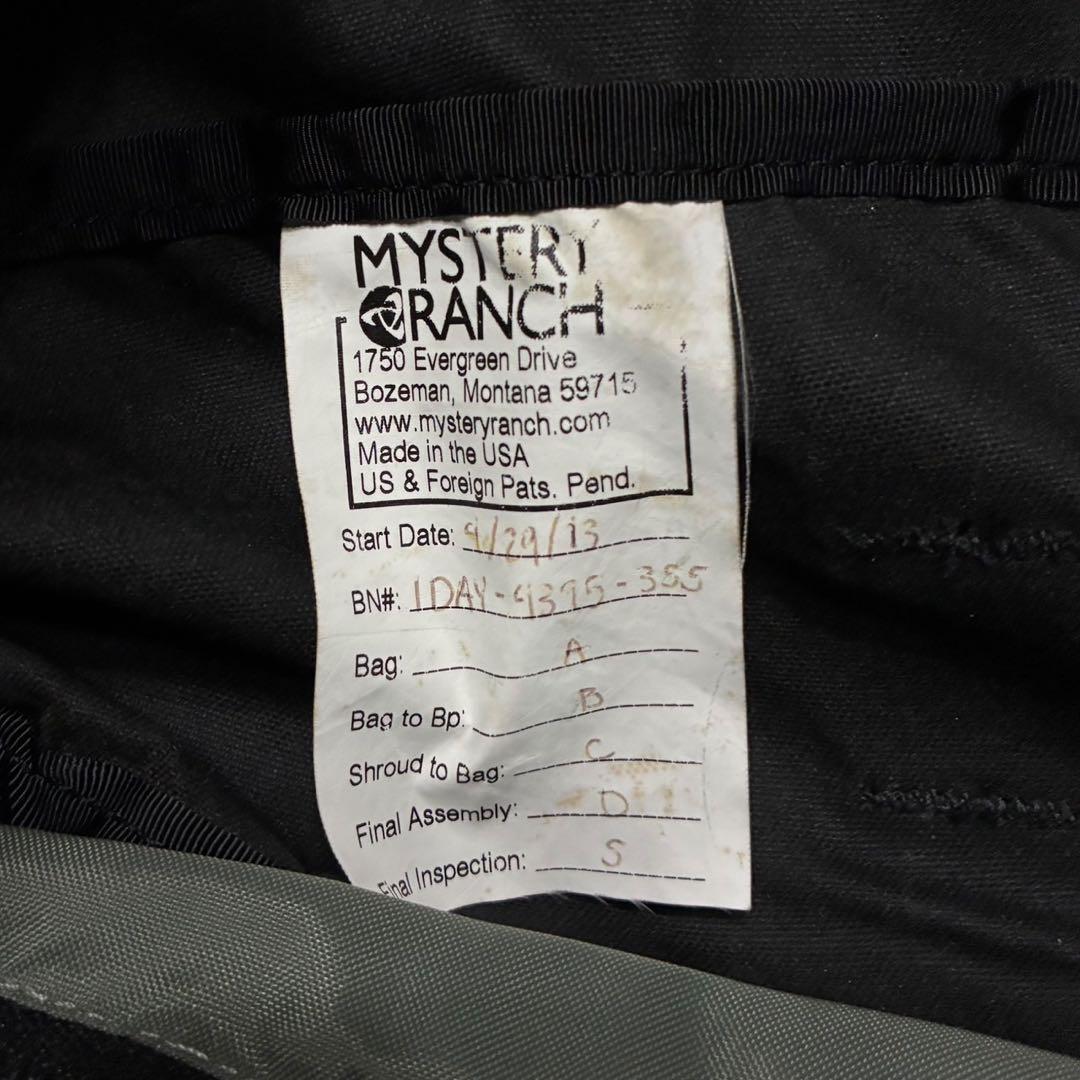 MYSTERY
RANCH
1750 Evergreen Drive
Bozeman, Montana 59715
www.mysteryranch.com
Made in the USA
US & Foreign Pats. Pend.
Start Date: 9/29/13
BN#: 1DAY-9395-355
Bag: A
Bag to Bp: B
Shroud to Bag: C
Final Assembly: D
Final Inspection: S